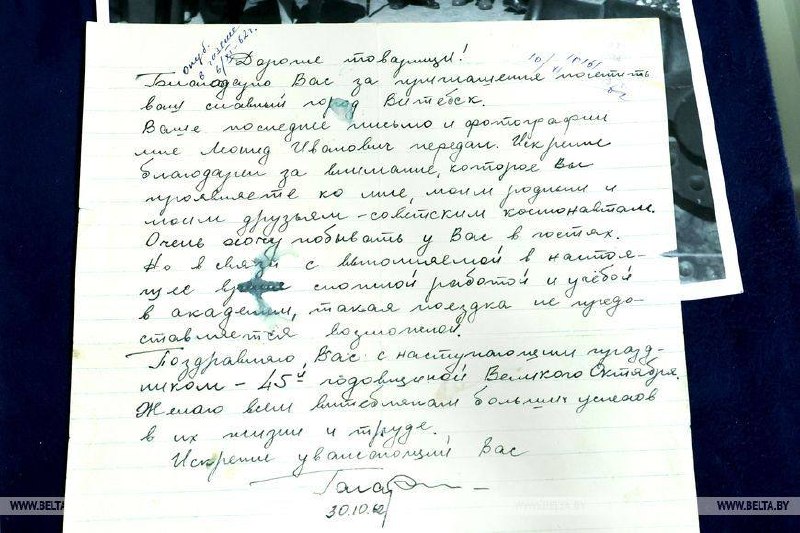 Опуб.
в
6/XI-62г.
Дорогие товарищи!
Благодарю Вас за приглашения посетить
ваш славный город Витебск.
Ваше последнее письмо и фотографии
мне Леонид Иванович передал. Искренне
благодарен за внимание, которое Вы
проявляете ко мне, моим родным и
моим друзьям - советским космонавтам.
Очень хочу побывать у Вас в гостях.
Но в связи с выполняемой в настоя-
щее время сложной работой и учёбой
в академии, такая поездка не предо-
ставляется возможной.
Поздравляю Вас с наступающим празд-
ником - 45й годовщиной Великого Октября.
Желаю всем витеблянам больших успехов
в их жизни и труде.
Искренне уважающий Вас
Гагарин
30.10.62
WWW.BELTA.BY
WWW.BELTA.BY